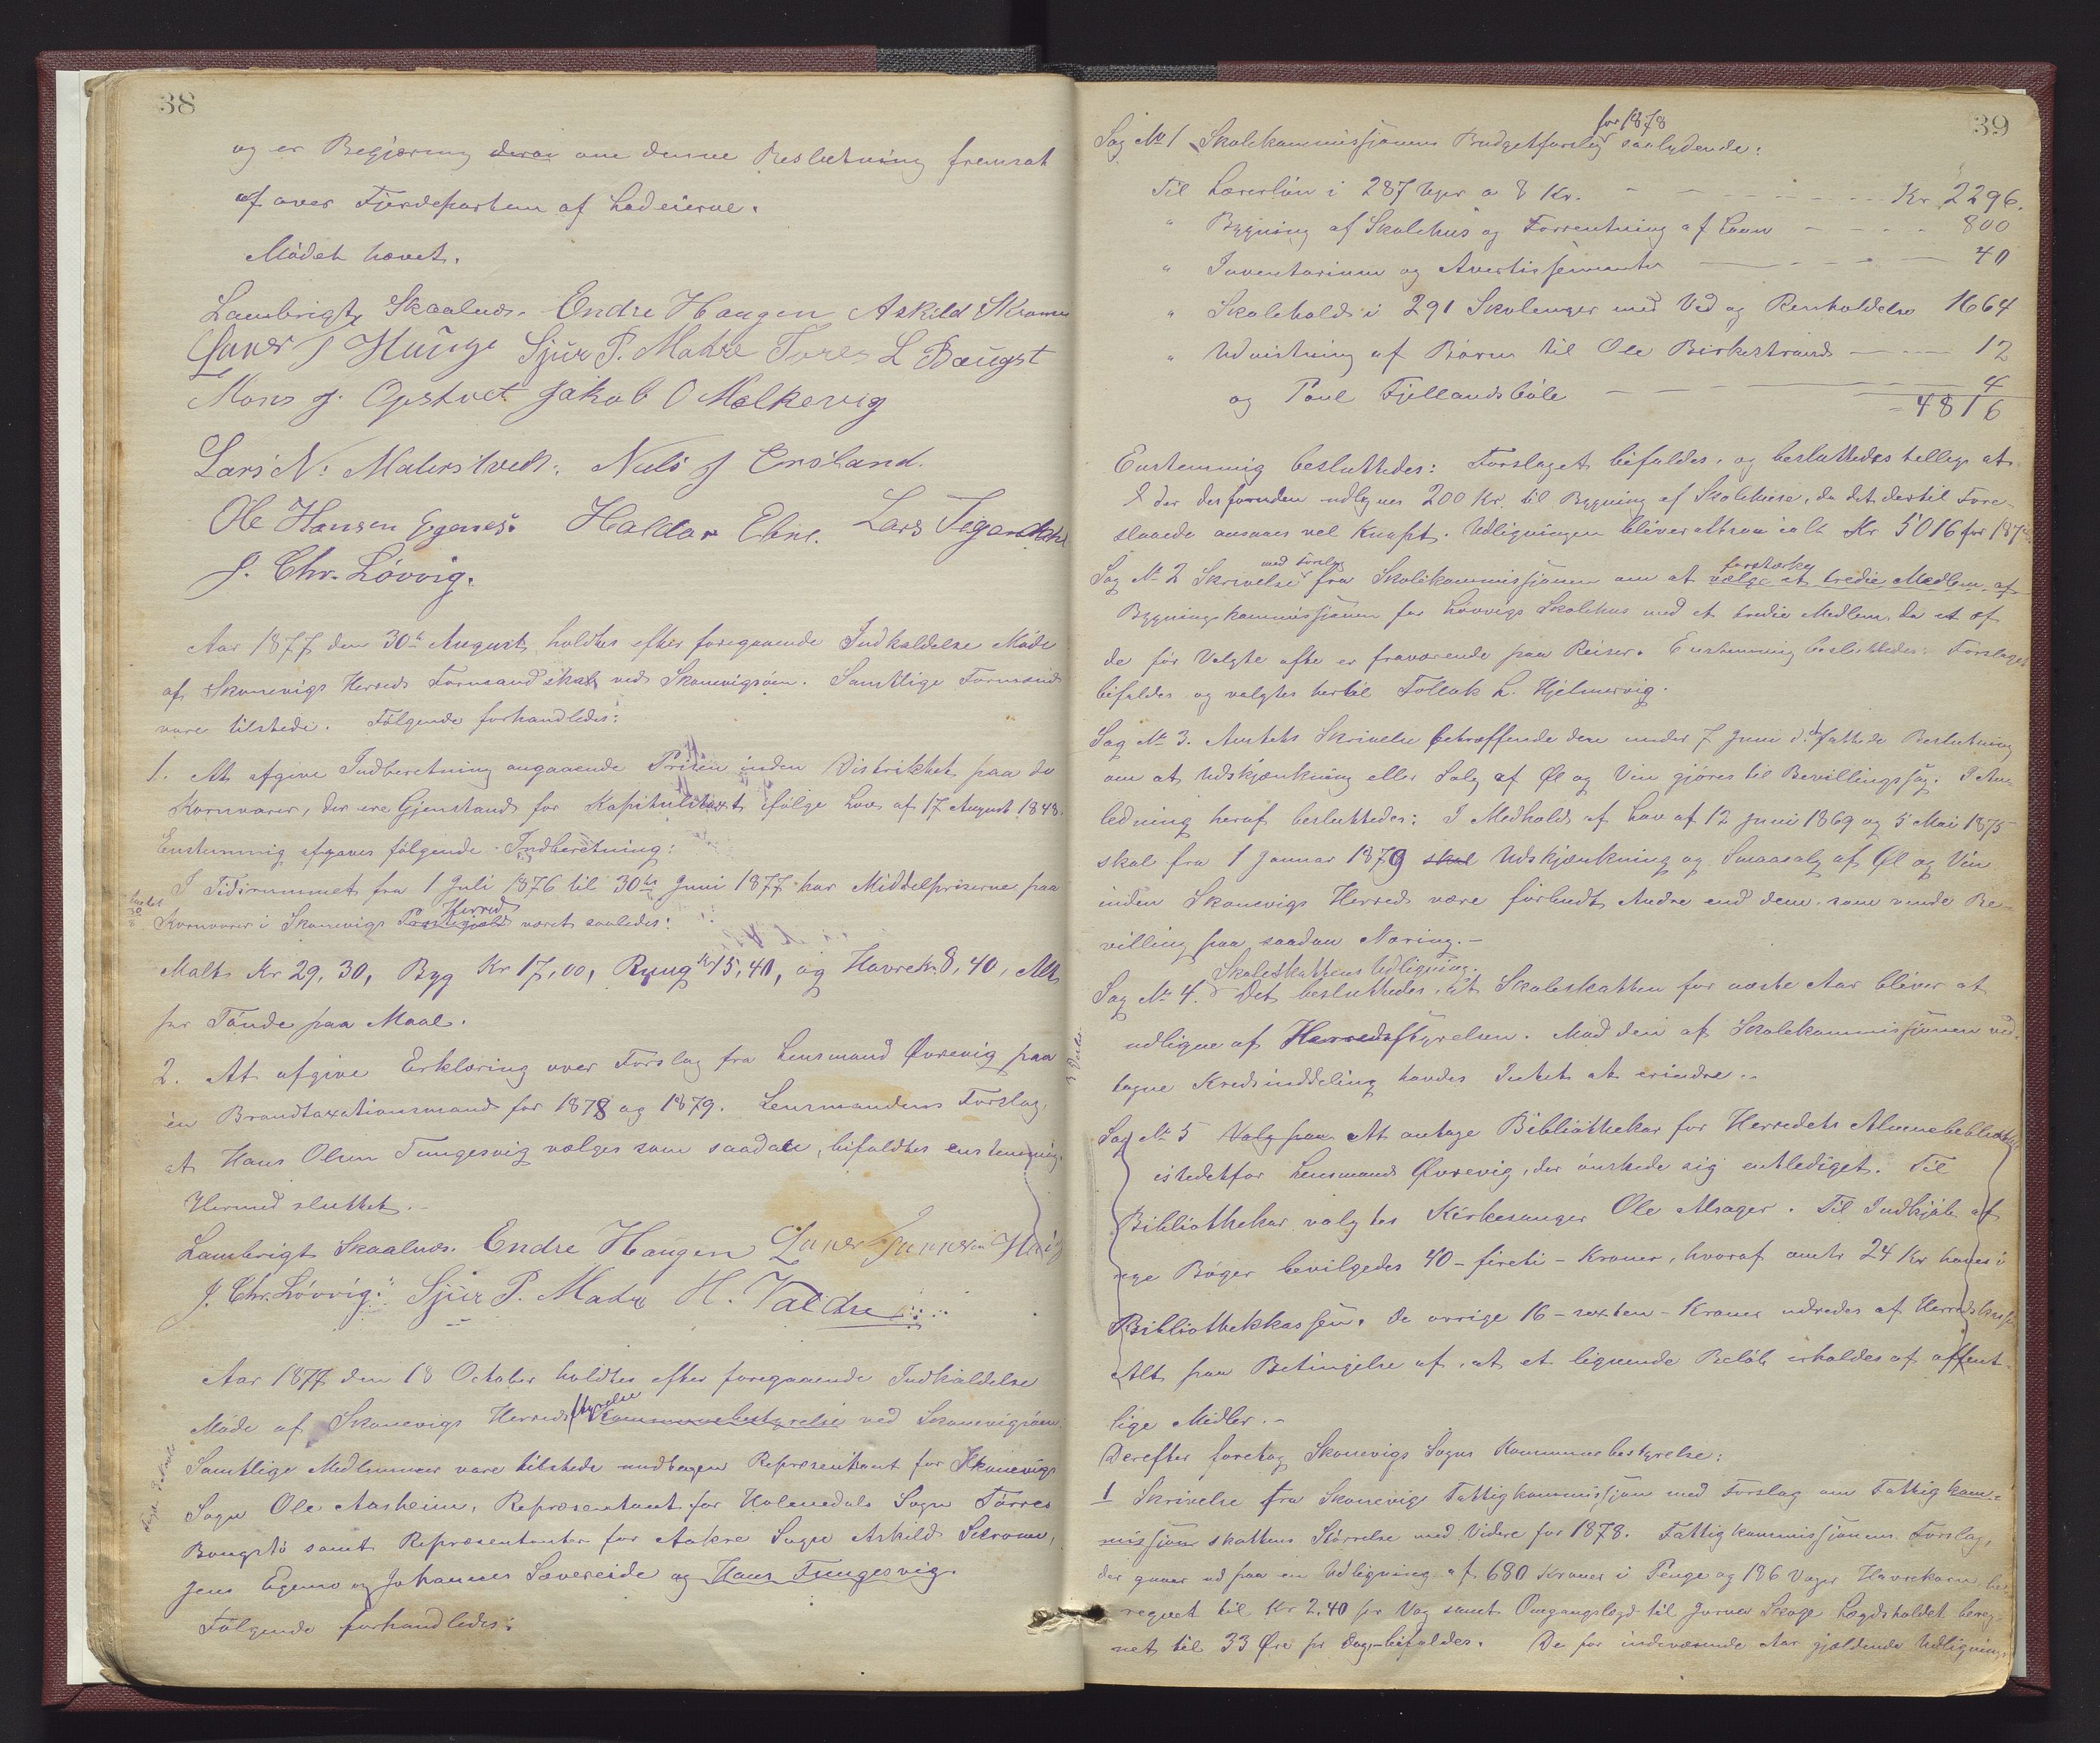 38
og er Begjæring derom om denne Beslutning fremsat
af over Fjerdeparten af Lodeierne.
Mødet hævet.
Lambrigt Skaalnes. Endre Haugen Askild Skromme
J Hauge Sjur P. Matre Tores L Baugst
Mons J. Opstvet Jakob O Mølkevig
Lars N. Materstvedt. Nils J Ersland.
Ole Hansen Egenes. Haldor Ebne. Lars
J. Chr. Løvvig.
Aar 1877 den 30te August holdtes efter foregaaende Indkaldelse Møde
af Skonevigs Herreds Formandskab ved Skonevigsøen. Samtlige Formænd
vare tilstede. Følgende forhandledes:
1. At afgive Indberetning angaaende Prisen inden Distriktet paa de
Kornvarer, der ere Gjenstand for Kapitulstaxt ifølge Lov af 17 August 1848.
Enstemmig afgaves følgende Indberetning:
I Tidsrummet fra 1 Juli 1876 til 30te Juni 1877 har Middelpriserne paa
Kornvarer i Skonevigs Præstegjeld Herred været saaledes:
Malt Kr 29,30, Byg Kr 17,00, Rug Kr 15,40, og Havre Kr 8,40, Alt
pr Tønde paa Maal.
2. At afgive Erklæring over Forslag fra Lensmand Øvrevig paa
en Brandtaxationsmand for 1878 og 1879. Lensmandens Forslag,
at Hans Olsen Tungesvig vælges som saadan, bifaldtes enstemmig.
Hermed sluttet.
Lambrigt Skaalnes. Endre Haugen
J. Chr. Løvvig. Sjur P. Matre H. Valdre
Aar 1877 den 18 October holdtes efter foregaaende Indkaldelse
Møde af Skonevigs Herredsstyrelse Kommunebestyrelse ved Skonevigsøen.
Samtlige Medlemmer vare tilstede undtagen Repræsentant for Skonevigs
Sogn Ole Aasheim, Repræsentant for Holmedals Sogn Tørres
Bougstø samt Repræsentanter for Aakre Sogn Askild Skromme,
Jens Egenes og Johannes Sævereide og Hans Tungesvig.
Følgende forhandledes:
39
Sag No 1 Skolekommissjonens Budgetforslag for 1878 saalydende:
Til Lærerløn i 287 Uger a 8 Kr. - - - Kr 2296.
" Bygning af Skolehus og Forrentning af Laan - - - 800
" Inventarium og Avertissementer - - - 40
" Skolehold i 291 Skoleuger med Ved og Renholdelse 1664
" Udvisning af Børn til Ole Birkestrand - - - 12
og Poul Fjellandsbøle - - - 4
- 4816
Enstemmig besluttedes: Forslaget bifaldes, og besluttedes tillige at
der desforuden udlignes 200 Kr. til Bygning af Skolehuse, da det dertil Fore-
slaaede ansaaes vel knapt. Udligningen bliver altsaa ialt Kr 5016 for 187
Sag No 2 Skrivelse med Forslag fra Skolekommissjonen om at vælge et tredie Medlem af forstærke
Bygningskommissjonen for Løvvigs Skolehus med et tredie Medlem, da et af
de før Valgte ofte er fraværende paa Reiser. Enstemmig besluttedes: Forslaget
bifaldes og valgtes hertil Tollak L. Hjelmervig.
Sag No 3. Amtets Skrivelse betræffende den under 7 Juni d. A. fattede Beslutning
om at Udskjænkning eller Salg af Øl og Vin gjøres til Bevillingssag. I An-
ledning heraf besluttedes: I Medhold af Lov af 12 Juni 1869 og 5 Mai 1875
skal fra 1 Januar 1879 skal Udskjænkning og Smaasalg af Øl og Vin
inden Skonevigs Herred være forbudt Andre end dem som vinde Be-
villing paa saadan Næring. -
Skoleskattens Udligning.
Sag No 4. Det besluttedes, at Skoleskatten for næste Aar bliver at
udligne af Herredsstyrelsen. Mod den af Skolekommissjonen ved-
tagne Kredsinddeling havdes Intet at erindre. -
Sag No 5 Valg paa At antage Bibliothekar for Herredets Almuebibliothek
istedetfor Lensmand Øvrevig, der ønskede sig entlediget. Til
Bibliothekar valgtes Kirkesanger Ole Alsager. Til Indkjøb af
nye Bøger bevilgedes 40 - fireti - Kroner, hvoraf omtr 24 Kr haves i
Bibliothekkassen. De øvrige 16 - sexten - Kroner udredes af Herredskassen
Alt paa Betingelse af, at et lignende Beløb erholdes af offent-
lige Midler. -
Derefter foretog Skonevigs Sogns Kommunebestyrelse:
1 Skrivelse fra Skonevigs Fattigkommissjon med Forslag om Fattigkom-
missjons skattens Størrelse med Videre for 1878. Fattigkommissjonens Forslag,
der gaaer ud paa en Udligning af 680 Kroner i Penge og 186 Voger Havrekorn be-
regnet til Kr 2,40 pr Vog samt Omgangslægd til Lægdsholdet bereg-
net til 33 Øre pr Dag - bifaldes. De for indeværende Aar gjældende Udlignings-